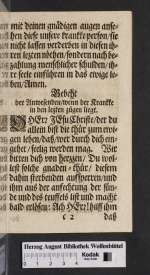 mit deinen gnädigen augen anse-
hen diese unsere krancke person/sie
nicht lassen verderben in diesen ih-
ren letzten nöthen/sondern nach be-
zahlung menschlicher schulden ih-
re seele einführen in das ewige le-
ben/Amen.
Gebeht
der Anwesenden/wenn der Krancke
in den letzten zügen liegt.
O HErr JEsu Christe/der du
allein bist die thür zum ewi-
gen leben/daß/wer durch dich ein-
gehet/selig werden mag. Wir
bitten dich von hertzen/Du wol-
lest solche gnaden-thür/diesem
dahin sterbenden auffsperren/und
ihm aus der anfechtung der sün-
de und des teuffels list und macht
bald erlösen: Ach HErr! hilff ihm
C 2 daß
Herzog August Bibliothek Wolfenbüttel